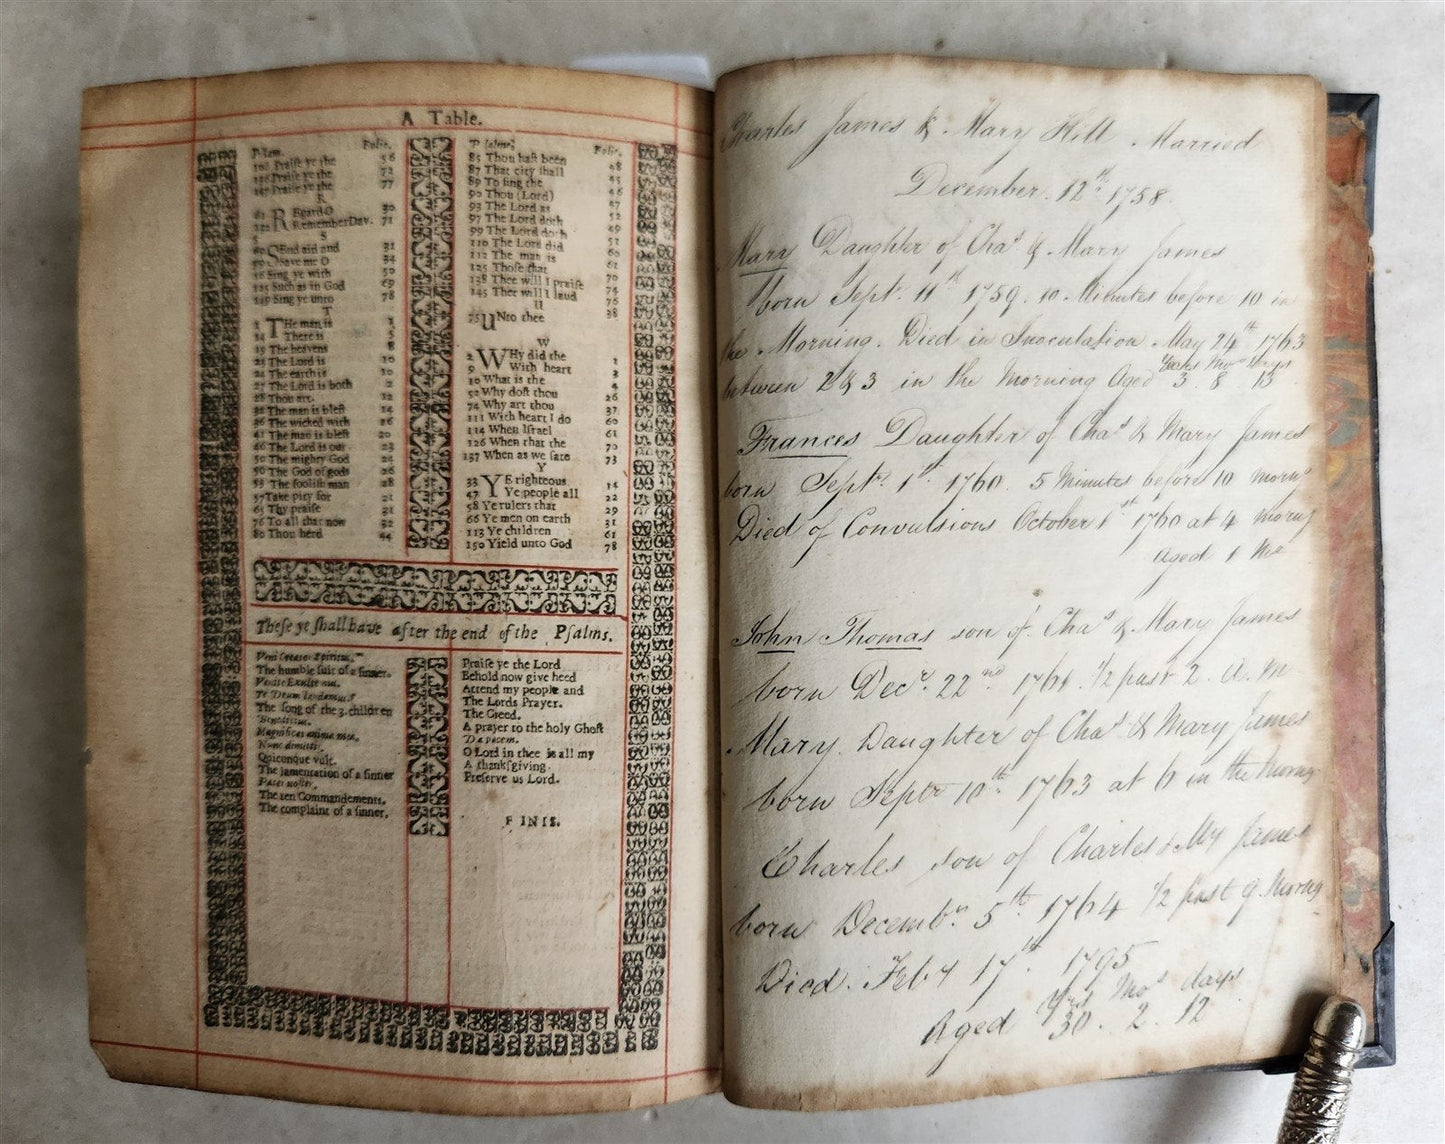 A Table.
Psalm. Folio.
Praise ye the 56
Praise ye the 72
Praise ye the 77
R
Regard O 30
Remember Dav. 71
S
SEnd aid and 31
Save me O 34
Sing ye with 50
125 Such as in God 69
149 Sing ye unto 78
T
1 THe man is 1
14 There is 5
19 The heavens 8
23 The Lord is 10
24 The earth is 10
27 The Lord is both 2
28 Thou art. 12
32 The man is blest 14
36 The wicked with 16
41 The man is blest 20
46 The Lord is our 23
50 The mighty God 24
50 The God of gods 26
53 The foolish man 28
57 Take pity for 21
65 Thy praise 31
76 To all that now 32
80 Thou herd 44
Psalms. Folio.
85 Thou hast been 48
87 That city shall 45
89 To sing the 45
90 Thou (Lord) 46
93 The Lord as 47
97 The Lord doth 52
99 The Lord doth 49
110 The Lord did 57
112 The man is 60
125 Those that 61
138 Thee will I praise 70
145 Thee will I laud 74
U 76
75 UNto thee 38
W
2 WHy did the 1
9 With heart 3
10 What is the 4
52 Why dost thou 26
74 Why art thou 37
111 With heart I do 60
114 When Israel 61
126 When that the 70
137 When as we sate 73
Y
33 YE righteous 14
47 Ye people all 22
58 Ye rulers that 29
66 Ye men on earth 31
113 Ye children 61
150 Yield unto God 78
These ye shall have after the end of the Psalms.
Veni Creator Spiritus.
The humble suit of a sinner.
Venite Exulte mus.
Te Deum laudamus.
The song of the 3. children
Benedictus.
Magnificat anima mea.
Nunc dimittis.
Quicunque vult.
The lamentation of a sinner
Pater noster.
The ten Commandements.
The complaint of a sinner.
Praise ye the Lord
Behold now give heed
Attend my people and
The Lords Prayer.
The Creed.
A prayer to the holy Ghost
Da pacem.
O Lord in thee is all my
A thanksgiving.
Preserve us Lord.
FINIS.
Charles James & Mary Hill Married
December. 12th. 1758.
Mary Daughter of Chas & Mary James
born Sept. 11th 1759. 10 Minutes before 10 in
the Morning. Died in Inoculation May 24th 1763
between 2 & 3 in the Morning Aged Years 3 Mos 8 Days 13
Frances Daughter of Chas & Mary James
born Septr. 1st. 1760 5 Minutes before 10 morng
Died of Convulsions October 1st 1760 at 4 morng
Aged 1 Mo
John Thomas son of Chas & Mary James
born Decr. 22nd 1761. 1/2 past 2. A. M
Mary. Daughter of Chas & Mary James
born Septr 10th. 1763 at 6 in the Morng
Charles son of Charles & My James
born Decembr. 5th. 1764 1/2 past 9 Morng
Died. Feby 17th. 1795
Aged Yrs 30. Mos 2. days 12